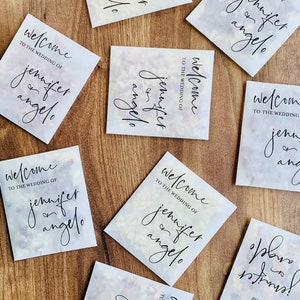 welcome
TO THE WEDDING OF
jennifer
&
angelo
jennifer
&
angelo
welcome
TO THE WEDDING OF
jennifer
&
angelo
welcome
TO THE WEDDING OF
jennifer
&
angelo
welcome
TO THE WEDDING OF
jennifer
&
angelo
welcome
TO THE WEDDING OF
jennifer
&
angelo
jennifer
&
angelo
jennifer
angelo